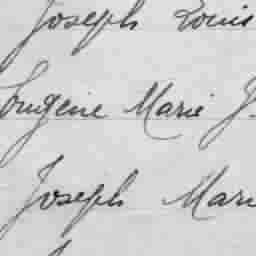 Joseph Louis
Eugène Marie J.
Joseph Mari